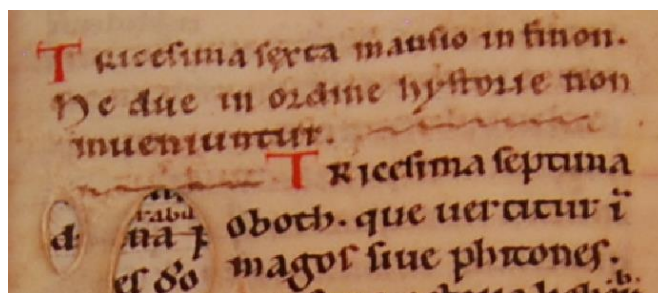 TRicesima sexta mansio in sinon.
He due in ordine hystorie non
inueniuntur.
TRicesima septima
oboth. que uertitur ī
magos siue phitones.